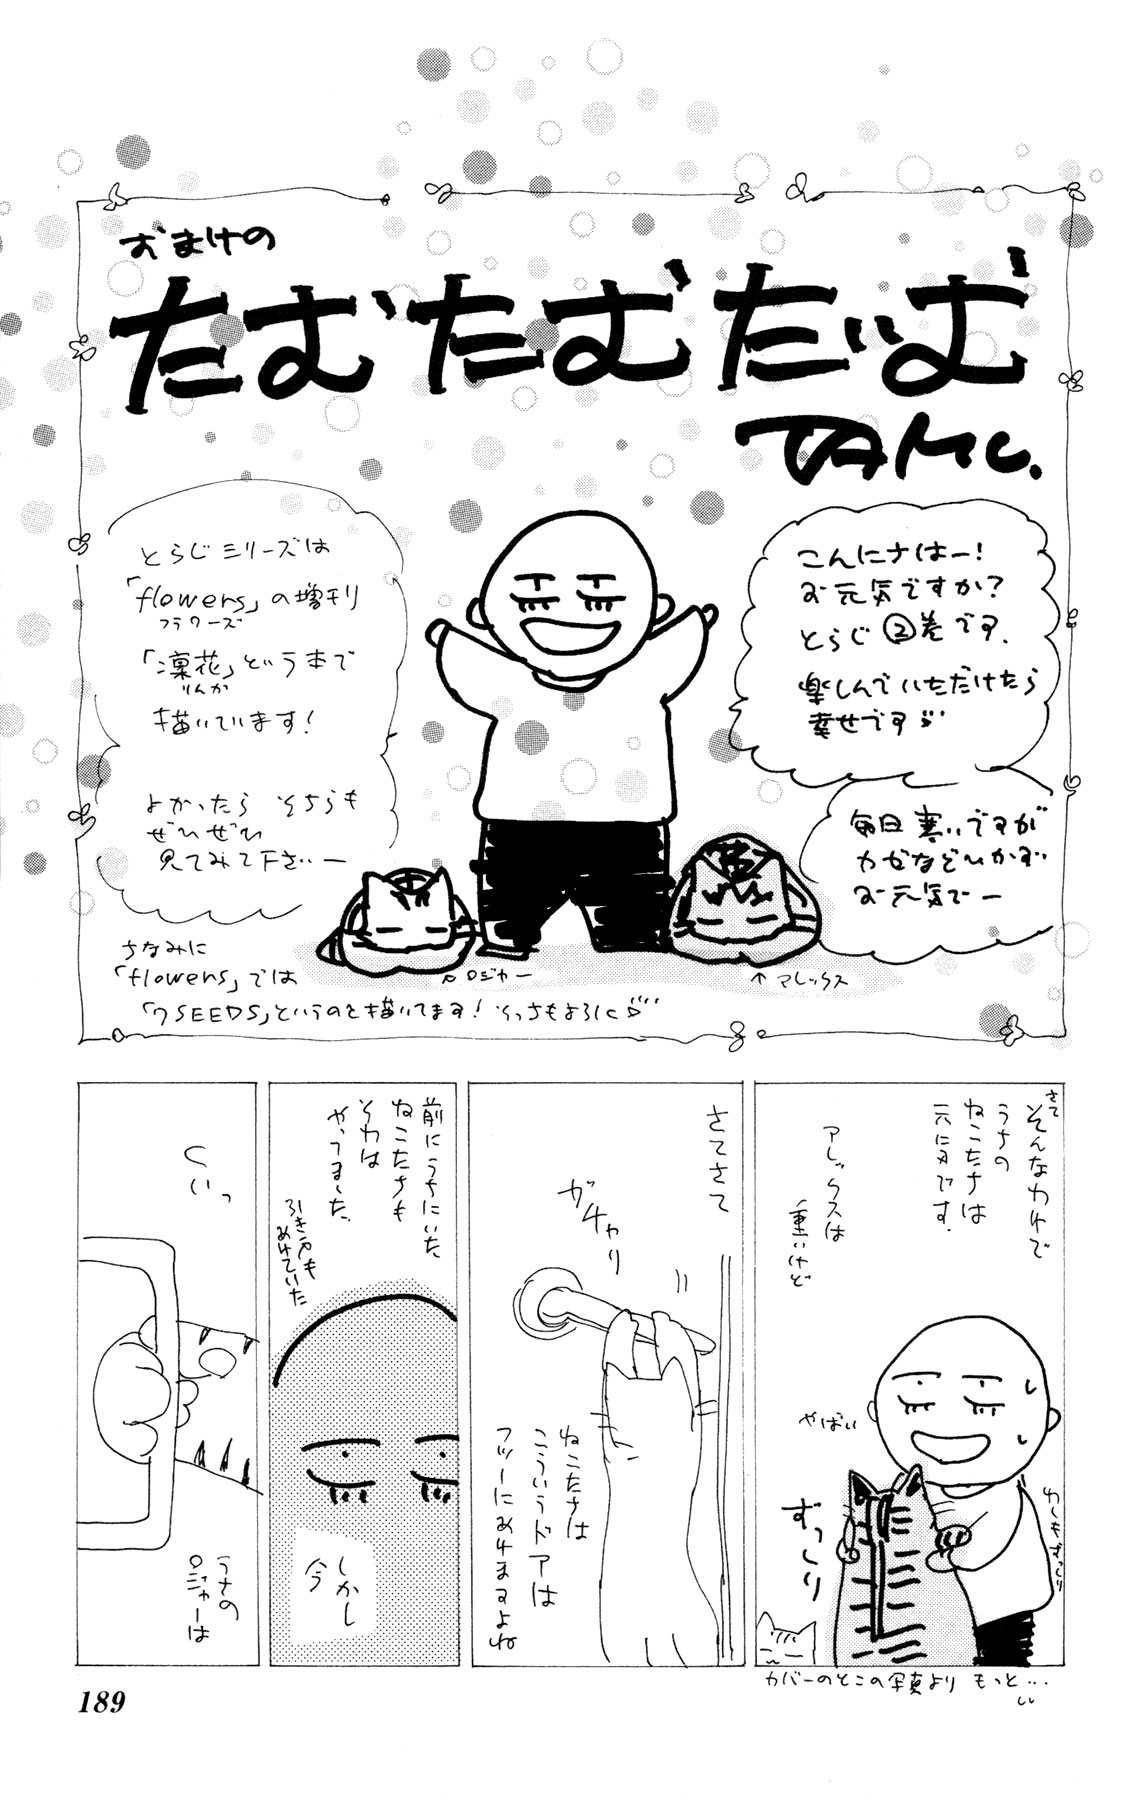 おまけの
たむたむたいむ
TAMU.
こんにちはー!
お元気ですか?
とらじ②巻です.
楽しんでいただけたら
幸せです
毎日寒いですが
カゼなどひかず
お元気でー
とらじシリーズは
「flowers」の増刊
フラワーズ
「凜花」という本で
りんか
描いています!
よかったら そちらも
ぜひぜひ
見てみて下さいー
ちなみに
「flowers」では
「7SEEDS」というのを描いてます! そっちもよろしく
ロジャー
↑アレックス
さて
そんなわけで
うちの
ねこたちは
元気です.
アレックスは
重いけど
やばい
ずっしり
わしもずっしり
カバーのそこの写真より もっと…
さてさて
ガチャリ
ねこたちは
こういうドアは
フツーにあけますよね
前にうちにいた
ねこたちも
それは
やってました.
引き戸も
あけていた
しかし
今
くいっ
うちの
ロジャーは
189